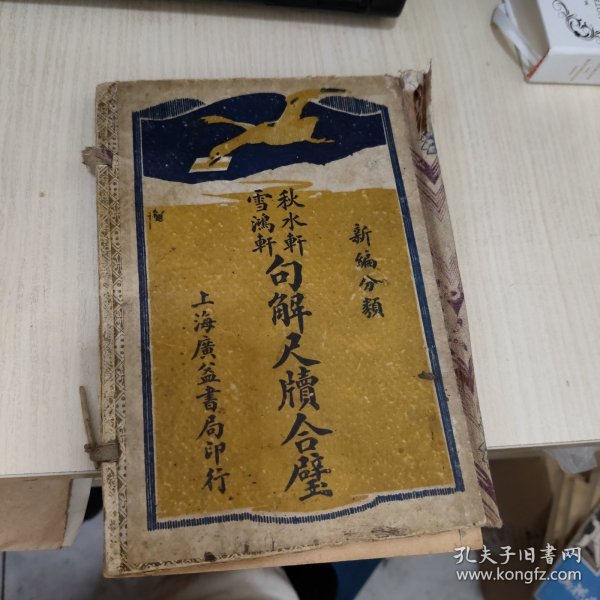 新編分類
秋水軒
雪鴻軒
句解尺牘合璧
上海廣益書局印行
孔夫子旧书网
www.kongfz.com